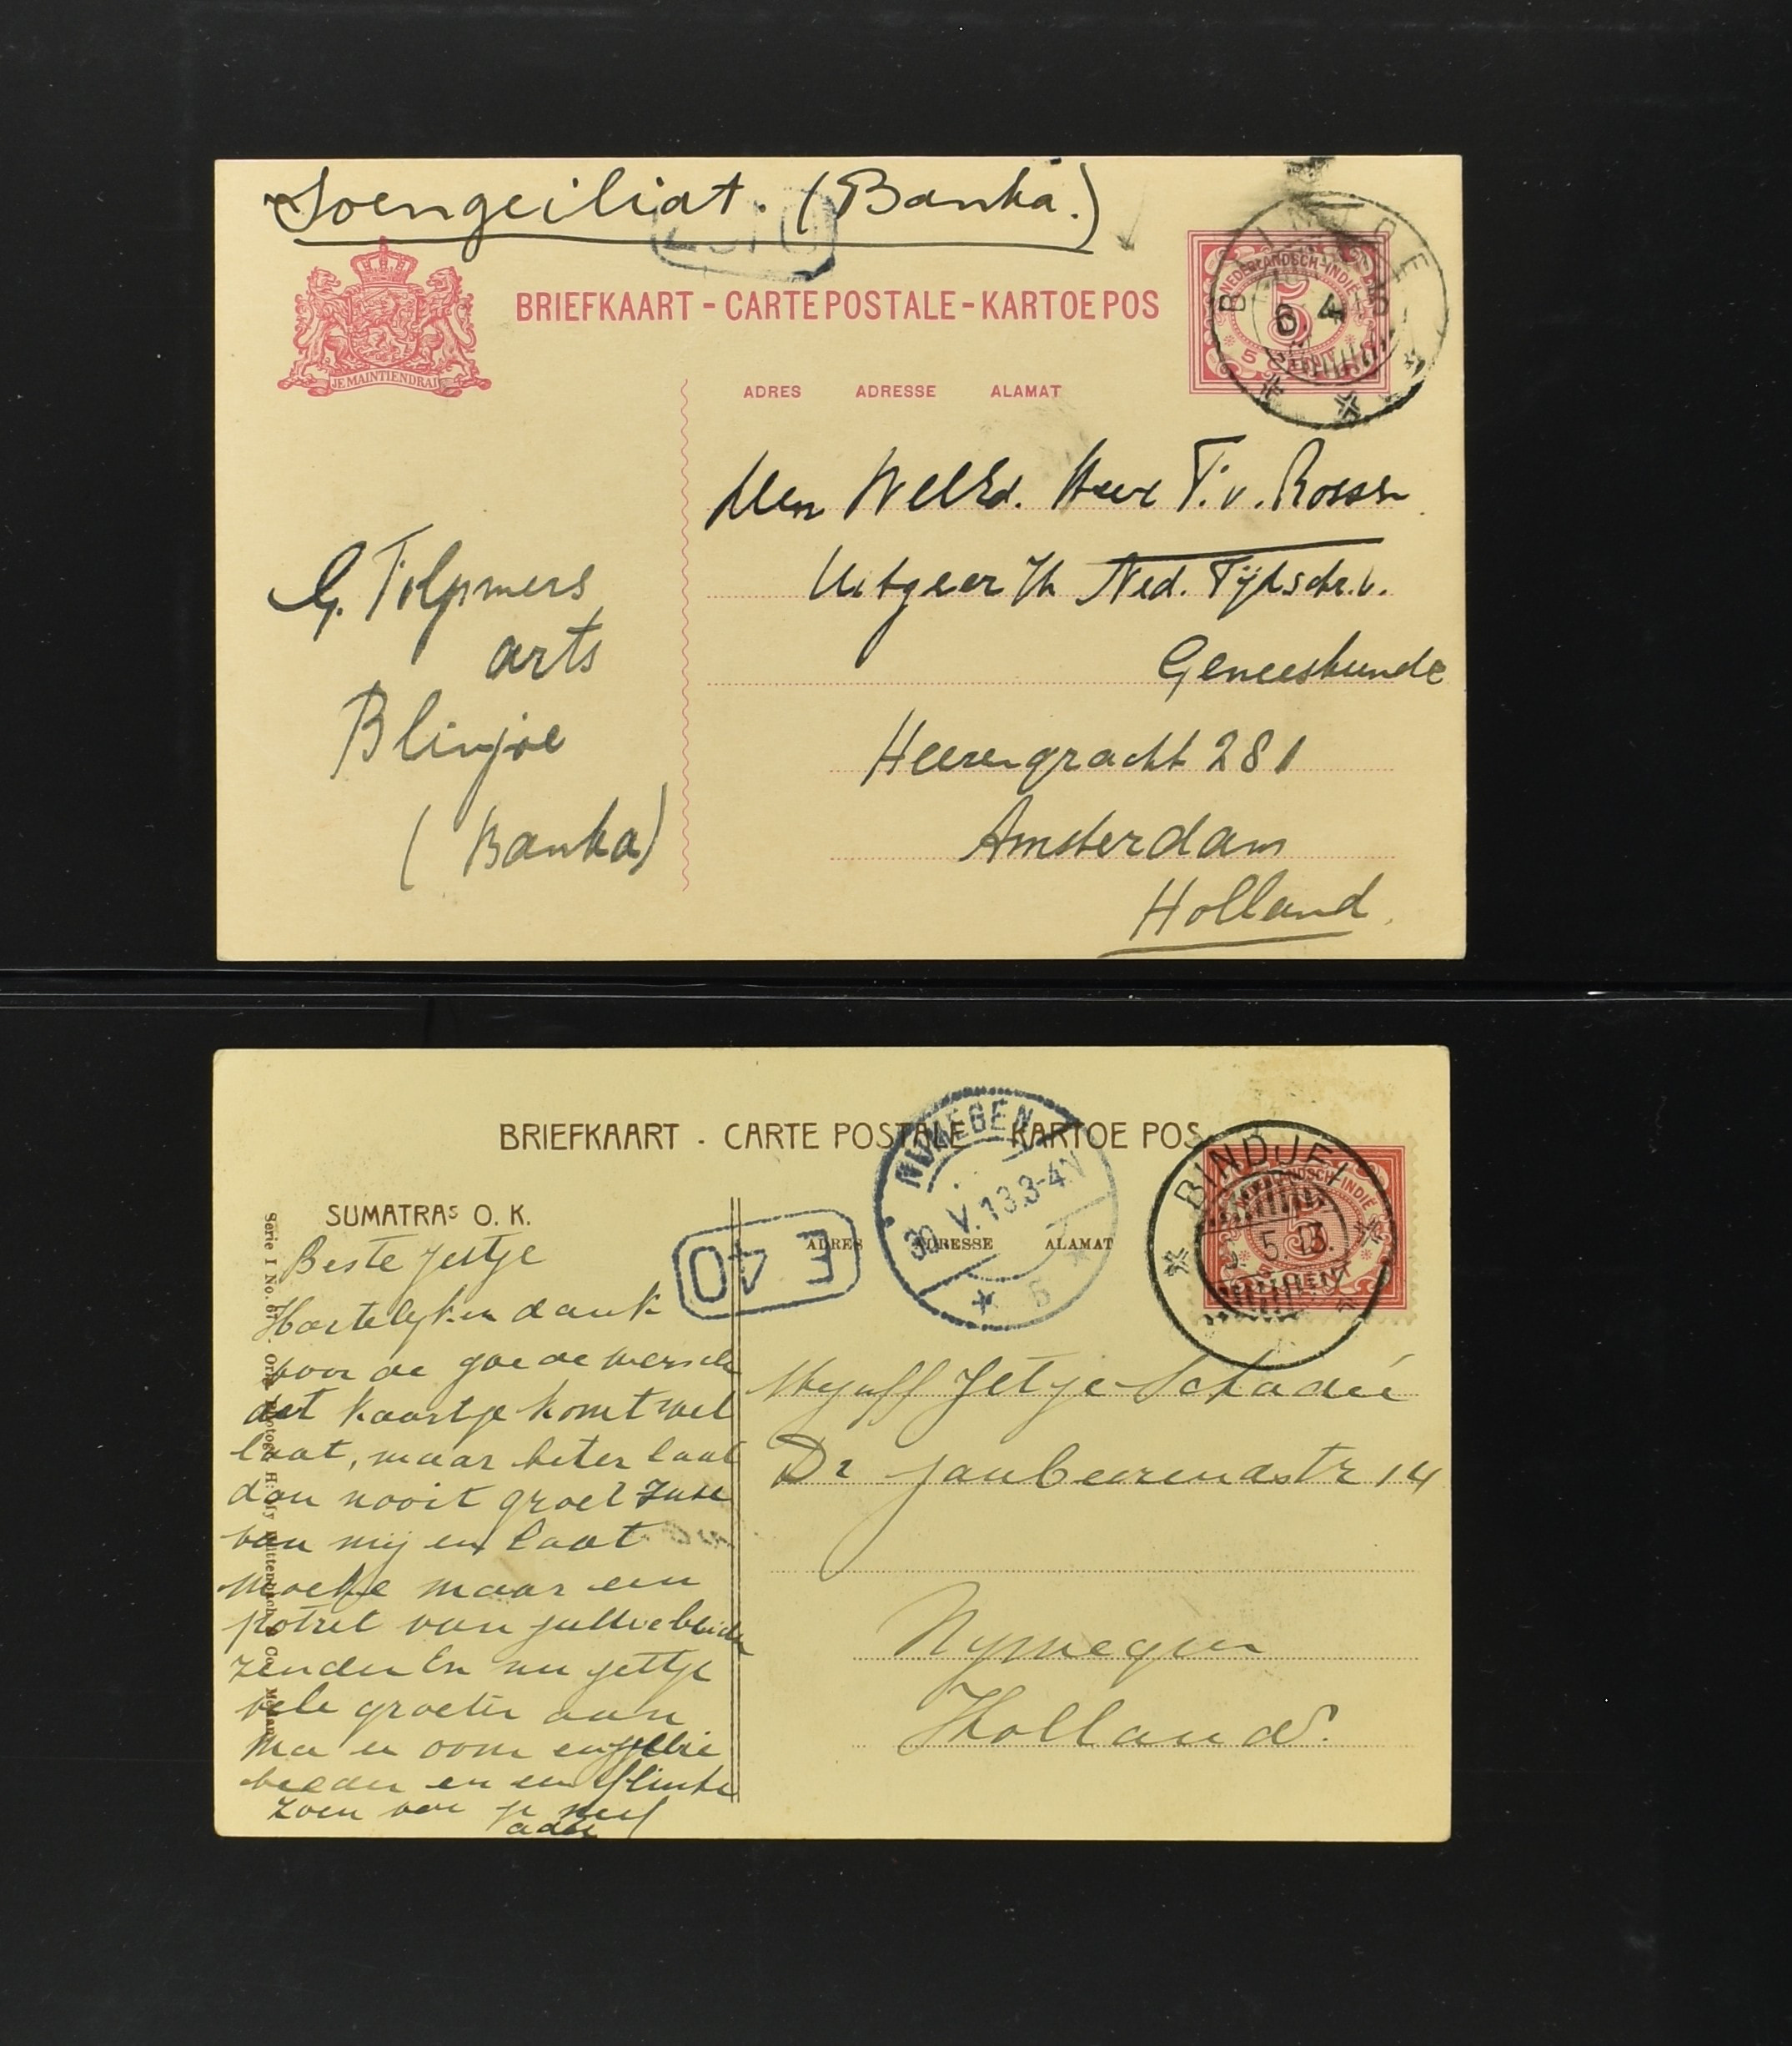 Soengeiliat. (Banka.)
BRIEFKAART - CARTE POSTALE - KARTOE POS
JE MAINTIENDRAI
NEDERLANDSCH-INDIË
5
6. 4
ADRES ADRESSE ALAMAT
Den WelEd. Heer T. v. Rossen
Uitgever Ned. Tijdschr. v.
Geneeskunde
Heerengracht 281
Amsterdam
Holland.
G. Tolpmers
arts
Blinjoe
(Banka)
BRIEFKAART - CARTE POSTALE KARTOE POS
NIJMEGEN
30 V. 13 3-4N
5
BINDJEI
5. 13.
5
CENT
SUMATRAS O. K.
E 40
ADRES ADRESSE ALAMAT
Beste Jetje
Hartelijken dank
voor de goede wensch
dit kaartje komt wel
laat, maar beter laat
dan nooit groet
van mij en laat
moeke maar een
potret van jullie beiden
zenden En nu Jettje
vele groeten aan
Ma en oom en jullie
beeden en een flinke
zoen van je neef
Jetje Schadee
Dr Jan Berendsstr 14
Nymegen
Holland.
Serie I No.
Co. Medan